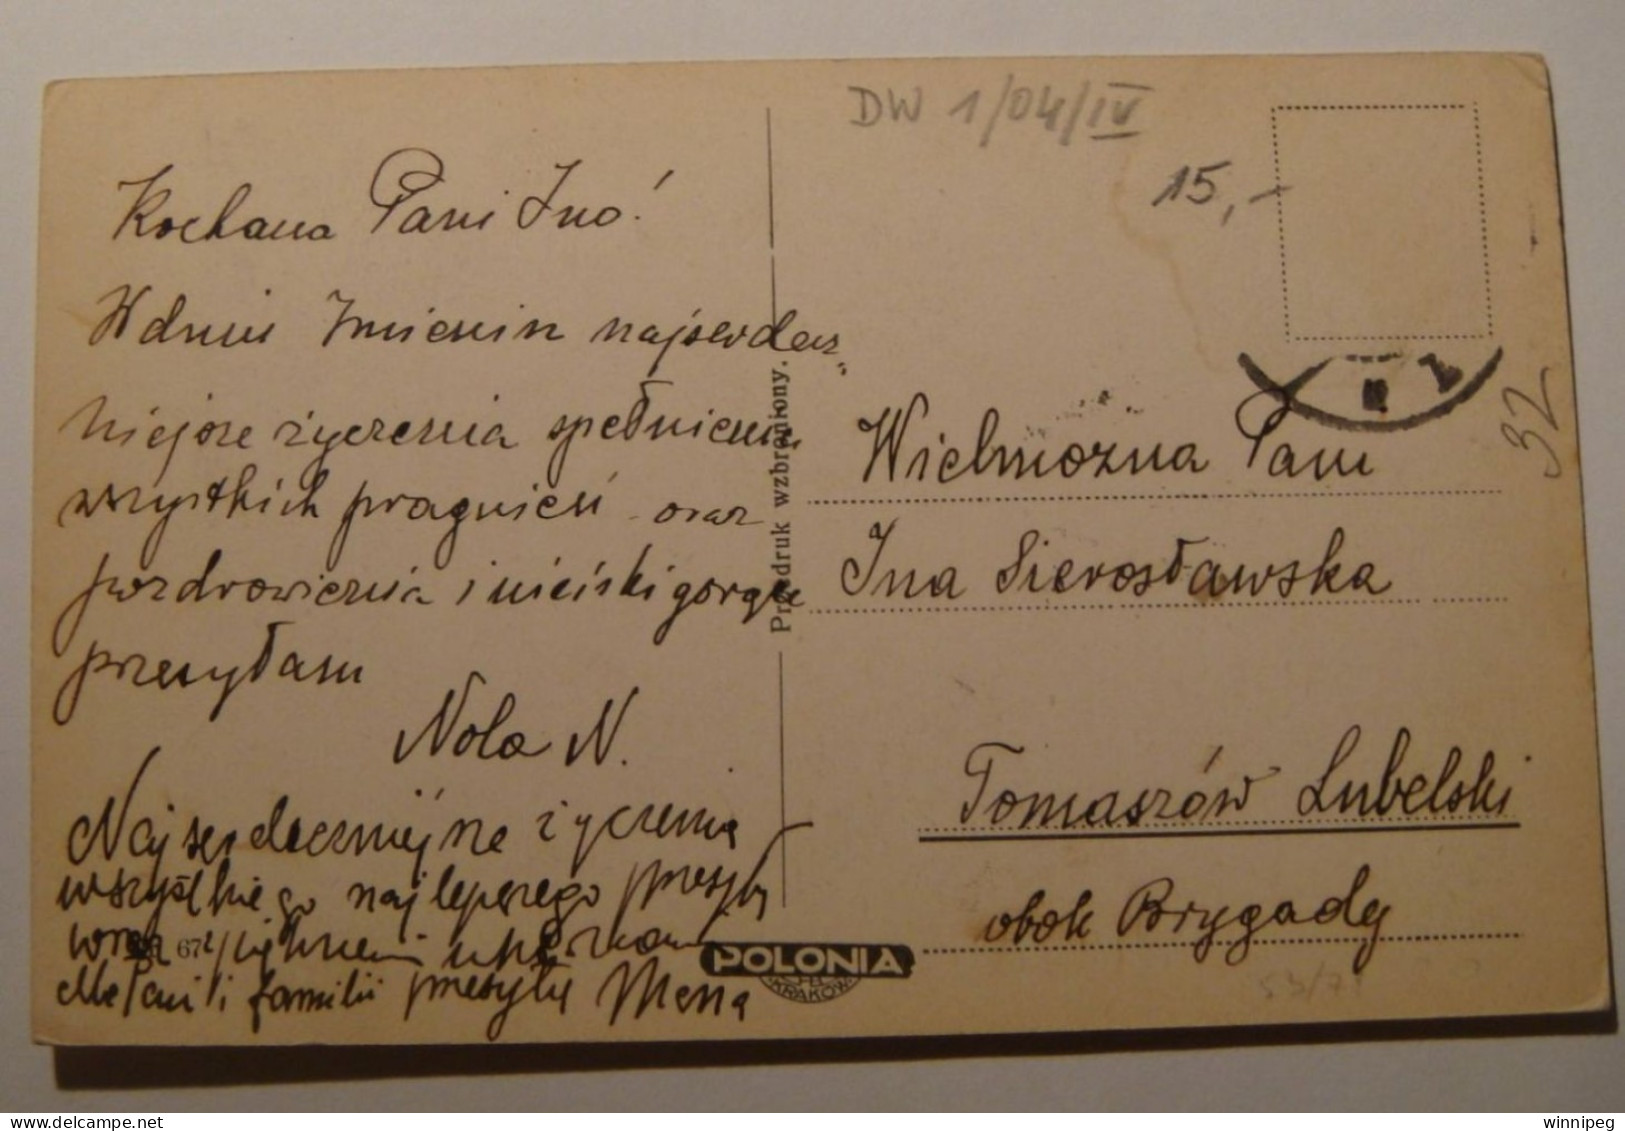 DW 1/04/IV
15,-
32
Kochana Pani Ino!
W dniu Imienin najserdecz„
niejsze życzenia spełnienia
wszystkich pragnień oraz
pozdrowienia i uściski gorące
przesyłam
Nola N.
Najserdeczniejsze życzenia
wszystkiego najlepszego przesyła
67
dla Pani i familii przesyła
Przedruk wzbroniony.
Wielmożna Pani
Ina Sierosławska
Tomaszów Lubelski
obok Brygady
POLONIA
KRAKÓW
winnipeg